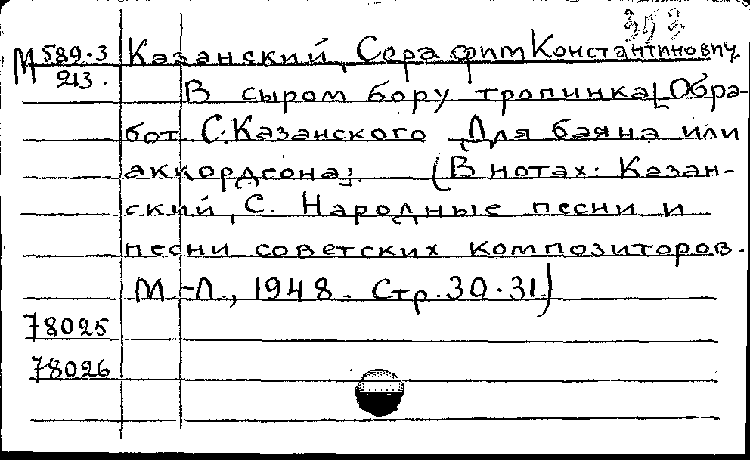 353
М 589.3 Казанский, Серафим Константинович.
213. В сыром бору тропинка [Обра-
бот. С. Казанского. Для баяна или
аккордеона]. (В нотах: Казан-
ский, С. Народные песни и
песни советских композиторов.
М.-Л., 1948. Стр. 30-31)
78025
78026